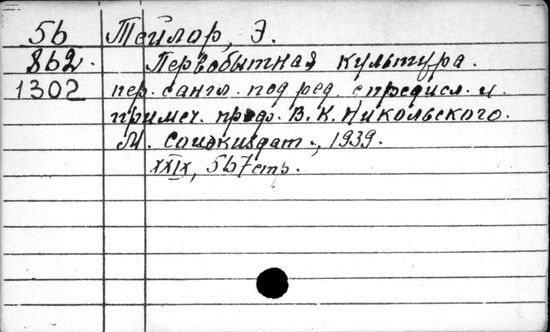 56 Тейлор, Э.
862. Первобытная культура.
1302 пер. с англ. под ред. с предисл. и
примеч. проф. В. К. Никольского.
М. Соцэкгдат., 1939.
XXIX, 567 стр.